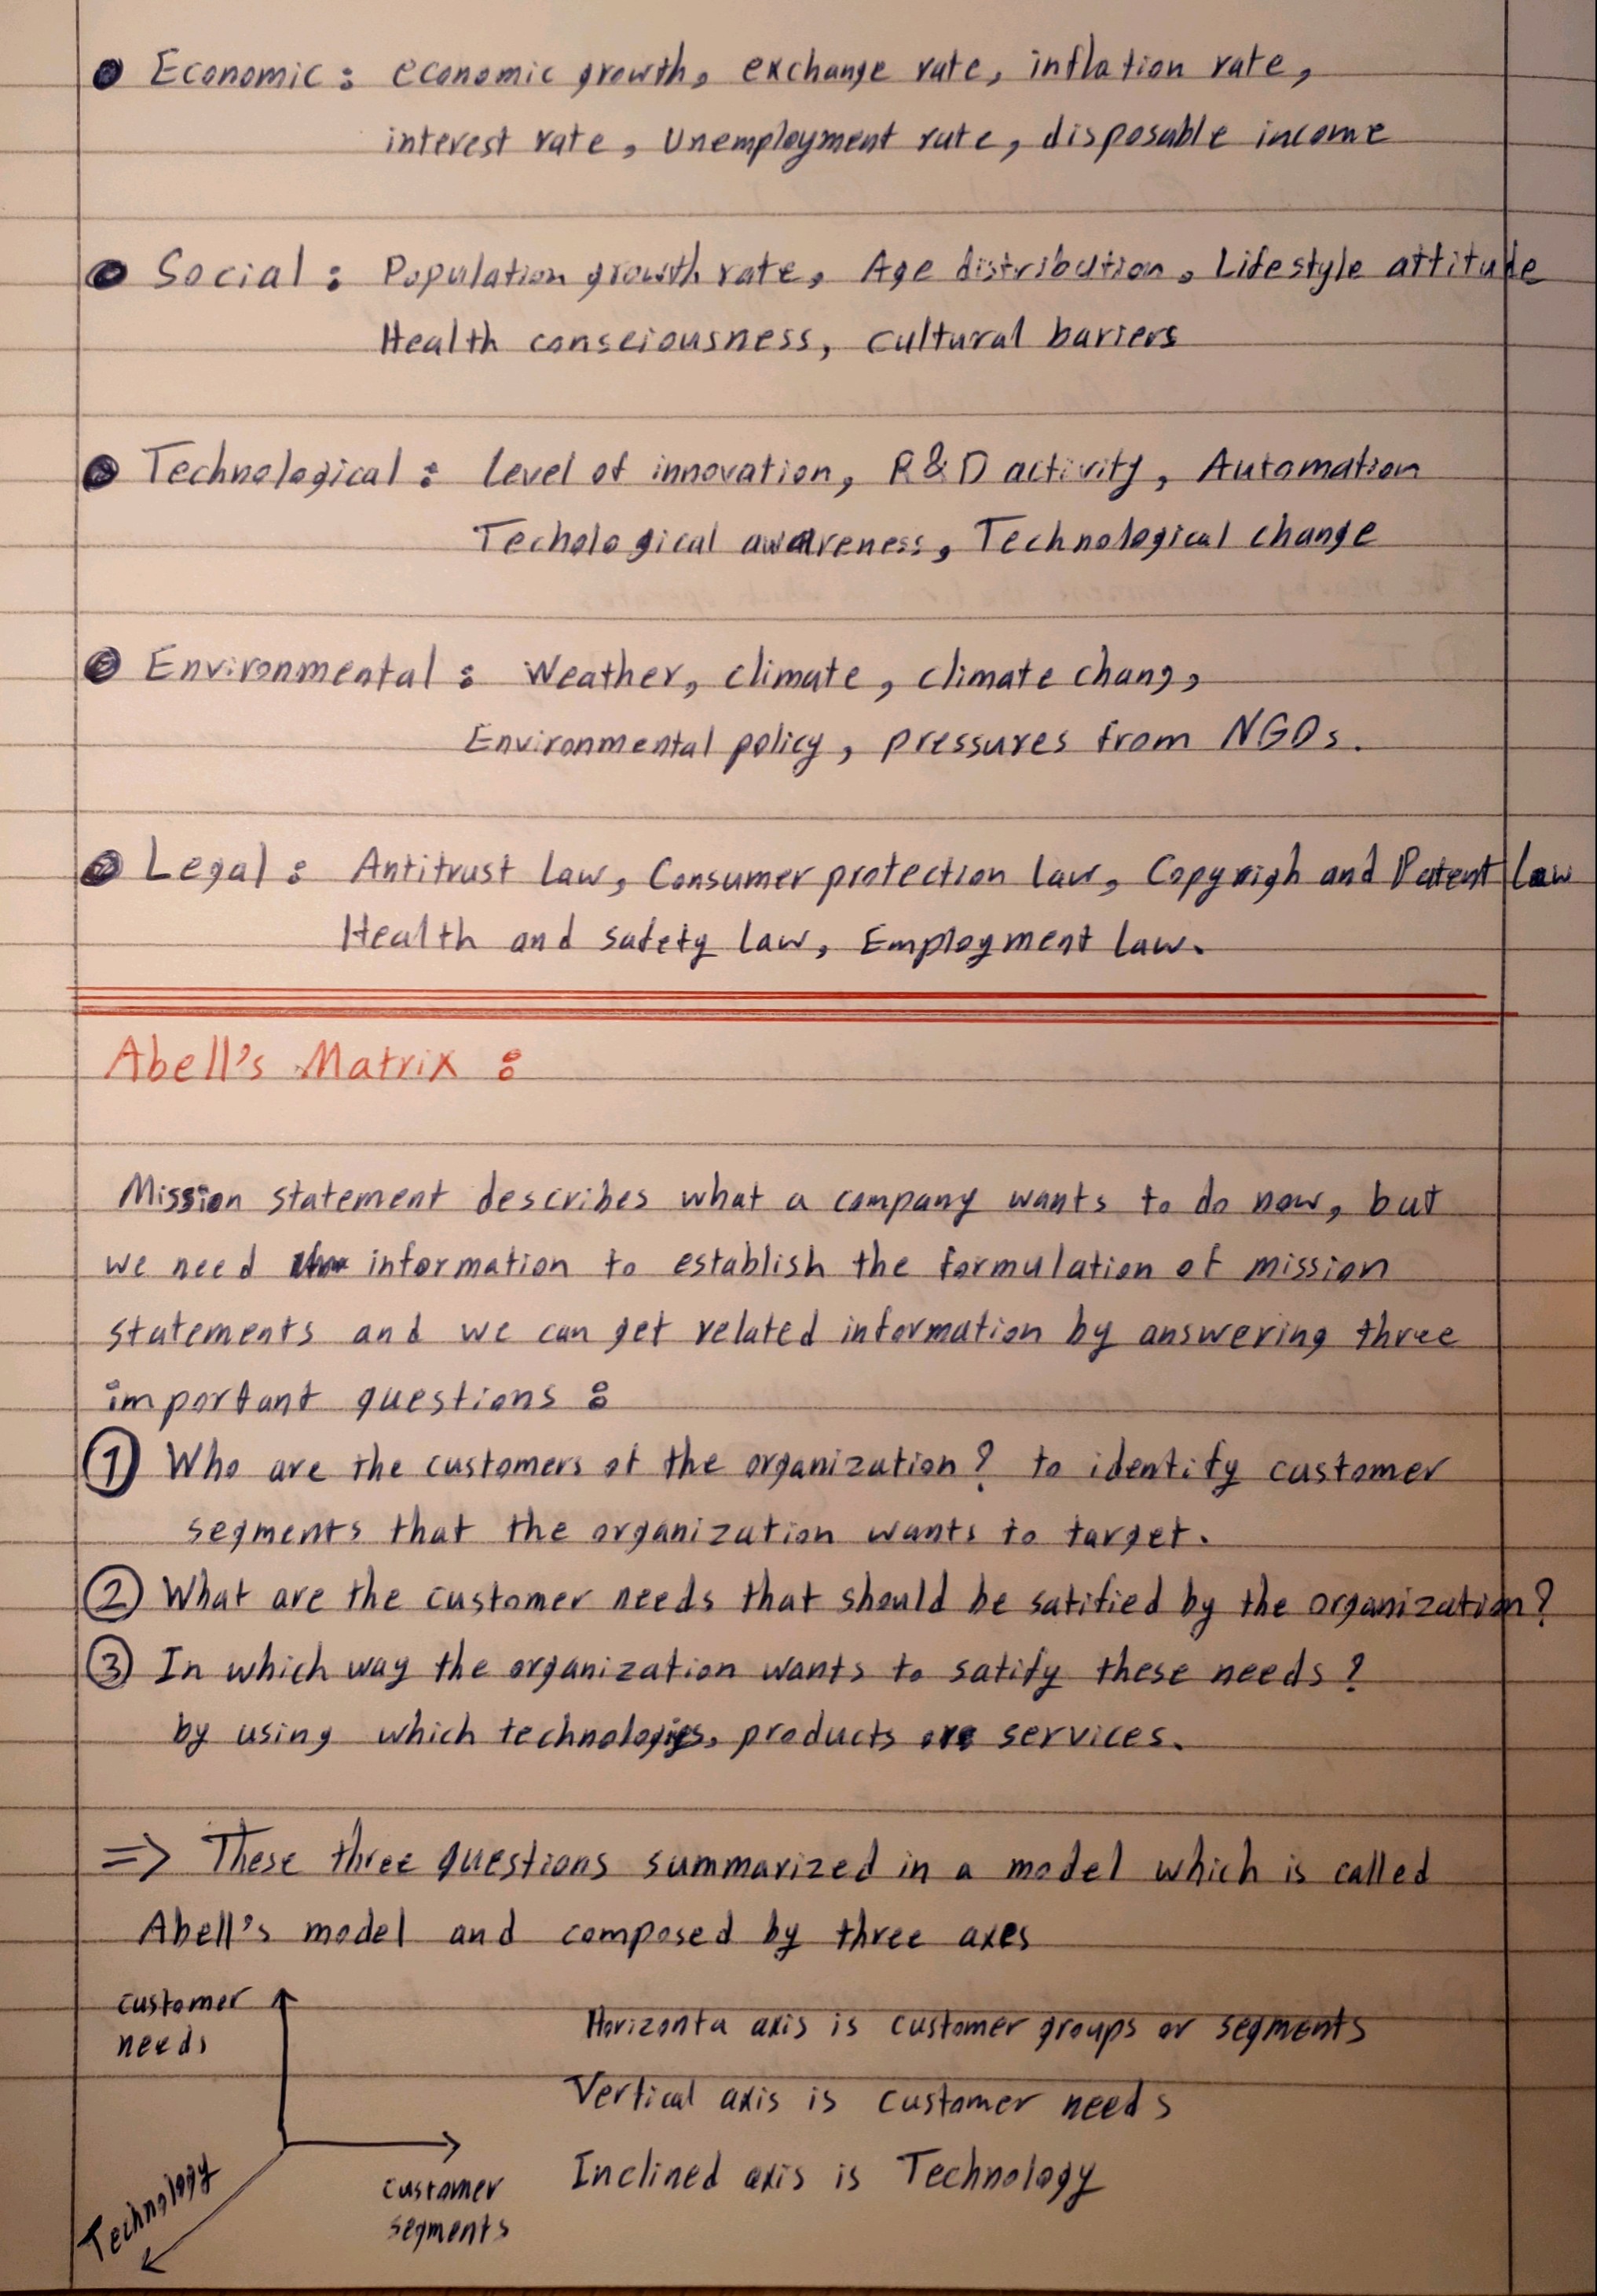 Economic : economic growth, exchange rate, inflation rate,
interest rate, Unemployment rate, disposable income
Social : Population growth rate, Age distribution, Lifestyle attitude
Health consciousness, cultural bariers
Technological : Level of innovation, R&D activity, Automation
Techological awareness, Technological change
Environmental : Weather, climate, climate chang,
Environmental policy, pressures from NGOs.
Legal : Antitrust law, Consumer protection law, Copyrigh and Patent law
Health and safety law, Employment law.
Abell's Matrix :
Mission statement describes what a company wants to do now, but
we need information to establish the formulation of mission
statements and we can get related information by answering three
important questions :
① Who are the customers of the organization? to identify customer
segments that the organization wants to target.
② What are the customer needs that should be satified by the organization?
③ In which way the organization wants to satify these needs?
by using which technologies, products or services.
=> These three questions summarized in a model which is called
Abell's model and composed by three axes
customer
needs
Horizonta axis is customer groups or segments
Vertical axis is customer needs
Inclined axis is Technology
Technology
customer
segments